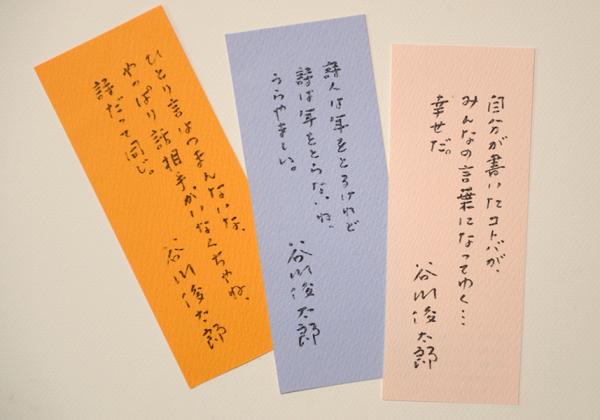 ひとり言はつまんないな、
やっぱり話相手がいなくちゃね、
詩だって同じ。
谷川俊太郎
詩人は年をとるけれど
詩は年をとらないね、
うらやましい。
谷川俊太郎
自分が書いたコトバが、
みんなの言葉になってゆく…
幸せだ。
谷川俊太郎